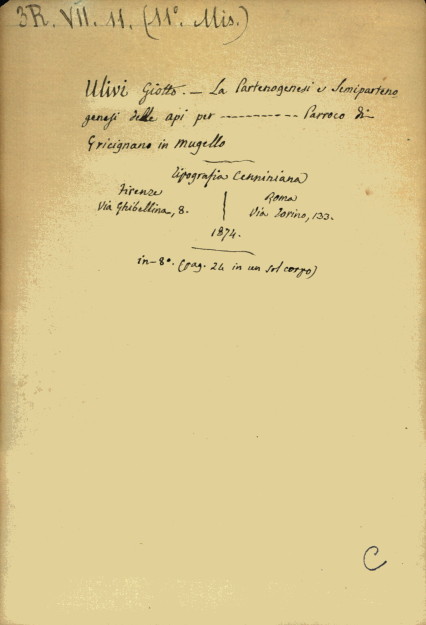 3R. VII. 11. (11º. Mis.)
Ulivi Giotto. — La Partenogenesi e Semiparteno-
genesi delle api per ---------- Parroco di
Gricignano in Mugello
Tipografia Cenniniana
Firenze
Via Ghibellina, 8.
Roma
Via Torino, 133.
1874.
in-8º. (pag. 24 in un sol corpo)
C